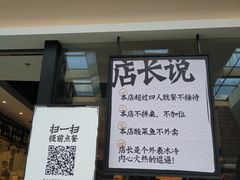 店长说
本店超过四人就餐不接待
本店不拼桌、不加位
本店酸菜鱼不外卖
店长是个外表冰冷
内心火热的逗逼!
扫一扫
提前点餐